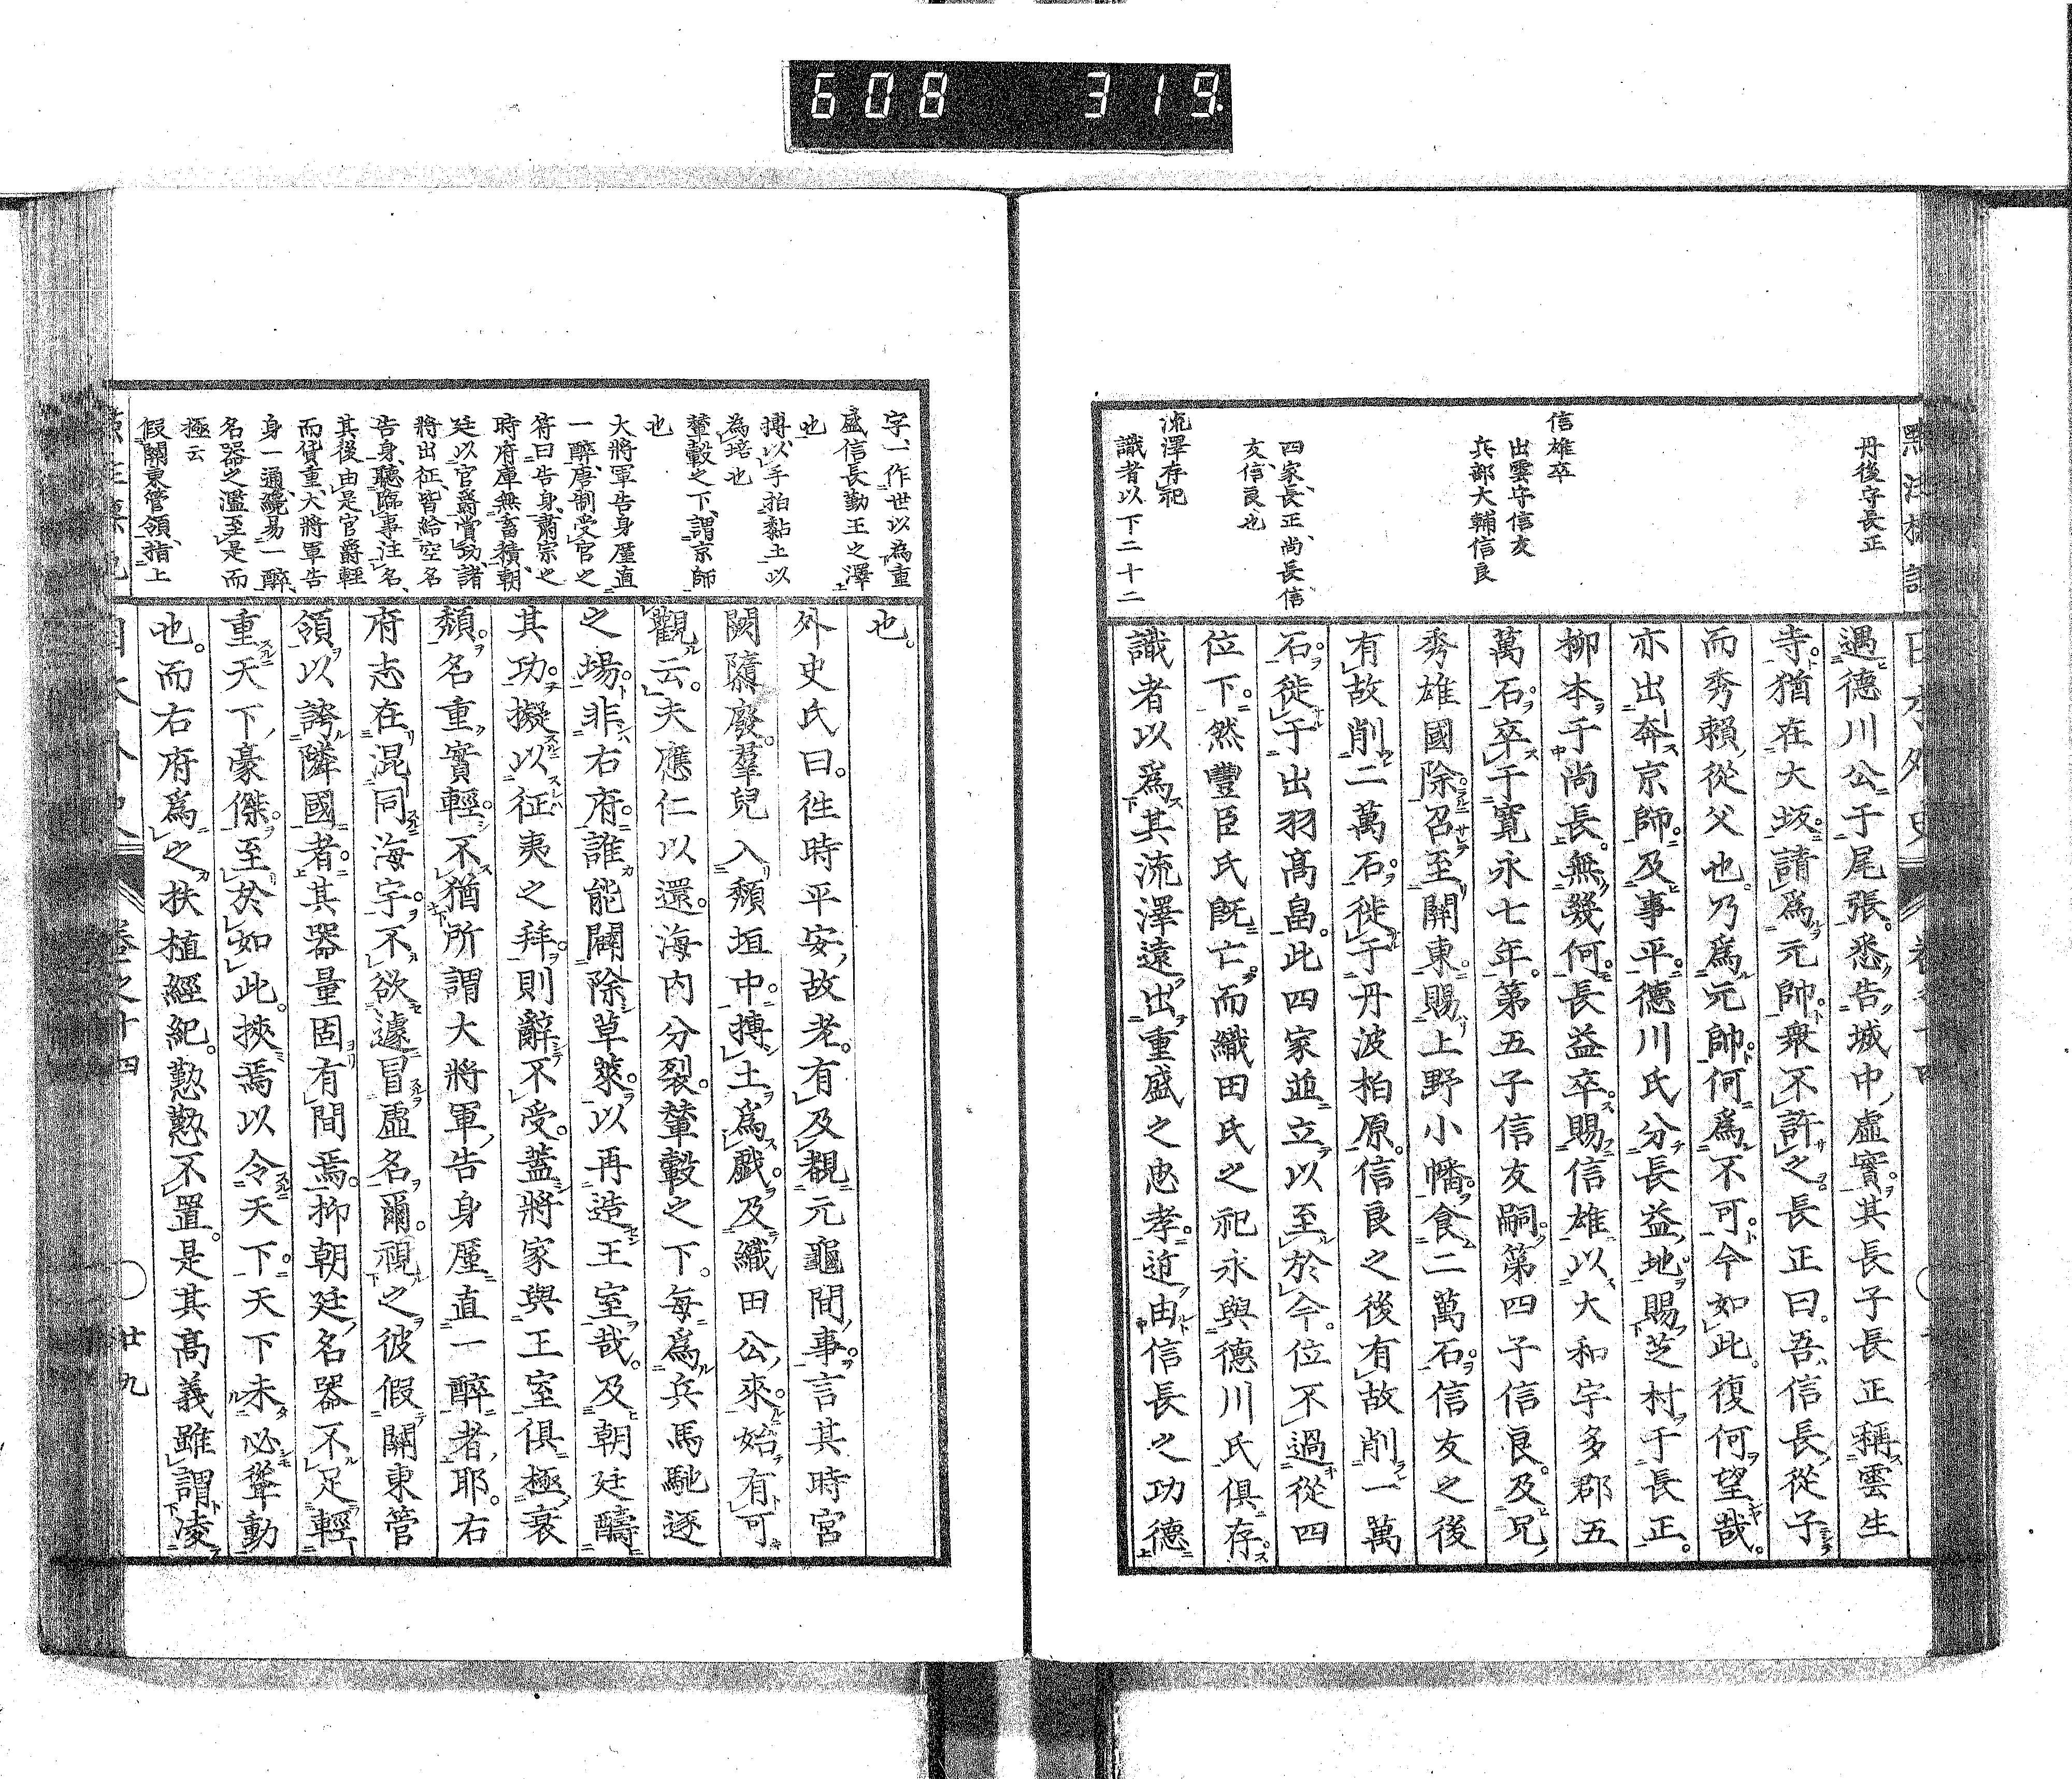 608 319.
丹後守長正
信雄卒
出雲守信友
兵部大輔信良
四家、長正、尚長信
友、信良也
流澤存祀
識者以下二十二
遇德川公于尾張。悉告城中虛實。其長子長正稱雲生
寺。猶在大坂。請爲元帥。衆不許之。長正曰。吾信長從子
而秀賴從父也。乃爲元帥。何爲不可。今如此。復何望哉。
亦出奔京師。及事平。德川氏分長益地。賜芝村于長正。
柳本于尚長。無幾何。長益卒。賜信雄以大和宇多郡五
萬石。卒于寬永七年。第五子信友嗣。第四子信良。及兄
秀雄國除。召至關東。賜上野小幡。食二萬石。信友之後
有故削二萬石。徙于丹波柏原。信良之後有故削一萬
石。徙于出羽高畠。此四家並立。以至於今。位不過從四
位下。然豐臣氏旣亡。而織田氏之祀永與德川氏俱存。
識者以爲其流澤遠出重盛之忠孝。近由信長之功德
字、一作世以為重
盛信長勤王之澤
也
搏以手拍黏土以
為培也
輦轂之下、謂京師
也
大將軍告身厪直
一醉、唐制受官之
符曰告身、肅宗之
時府庫無畜積、朝
廷以官爵賞功、諸
將出征、皆給空名
告身、聽臨事注名、
其後由是官爵輕
而貨重、大將軍告
身一通、纔易一醉、
名器之濫至是而
極云
假關東管領、指上
也。
外史氏曰。往時平安故老。有及覩元龜間事。言其時宮
闕隳廢。羣兒入頹垣中。搏土爲戲。及織田公來。始有可
觀云。夫應仁以還。海內分裂。輦轂之下。每爲兵馬馳逐
之場。非右府。誰能闢除草萊。以再造王室哉。及朝廷疇
其功。擬以征夷之拜。則辭不受。蓋將家與王室俱極衰
頹。名重實輕。不猶所謂大將軍告身厪直一醉者耶。右
府志在混同海宇。不欲遽冒虛名爾。視之彼假關東管
領以誇隣國者。其器量固有間焉。抑朝廷名器不足輕
重天下豪傑。至於如此。挾焉以令天下。天下未必聳動
也。而右府爲之扶植經紀。懃懃不置。是其高義雖謂凌
卷之十四
廿九